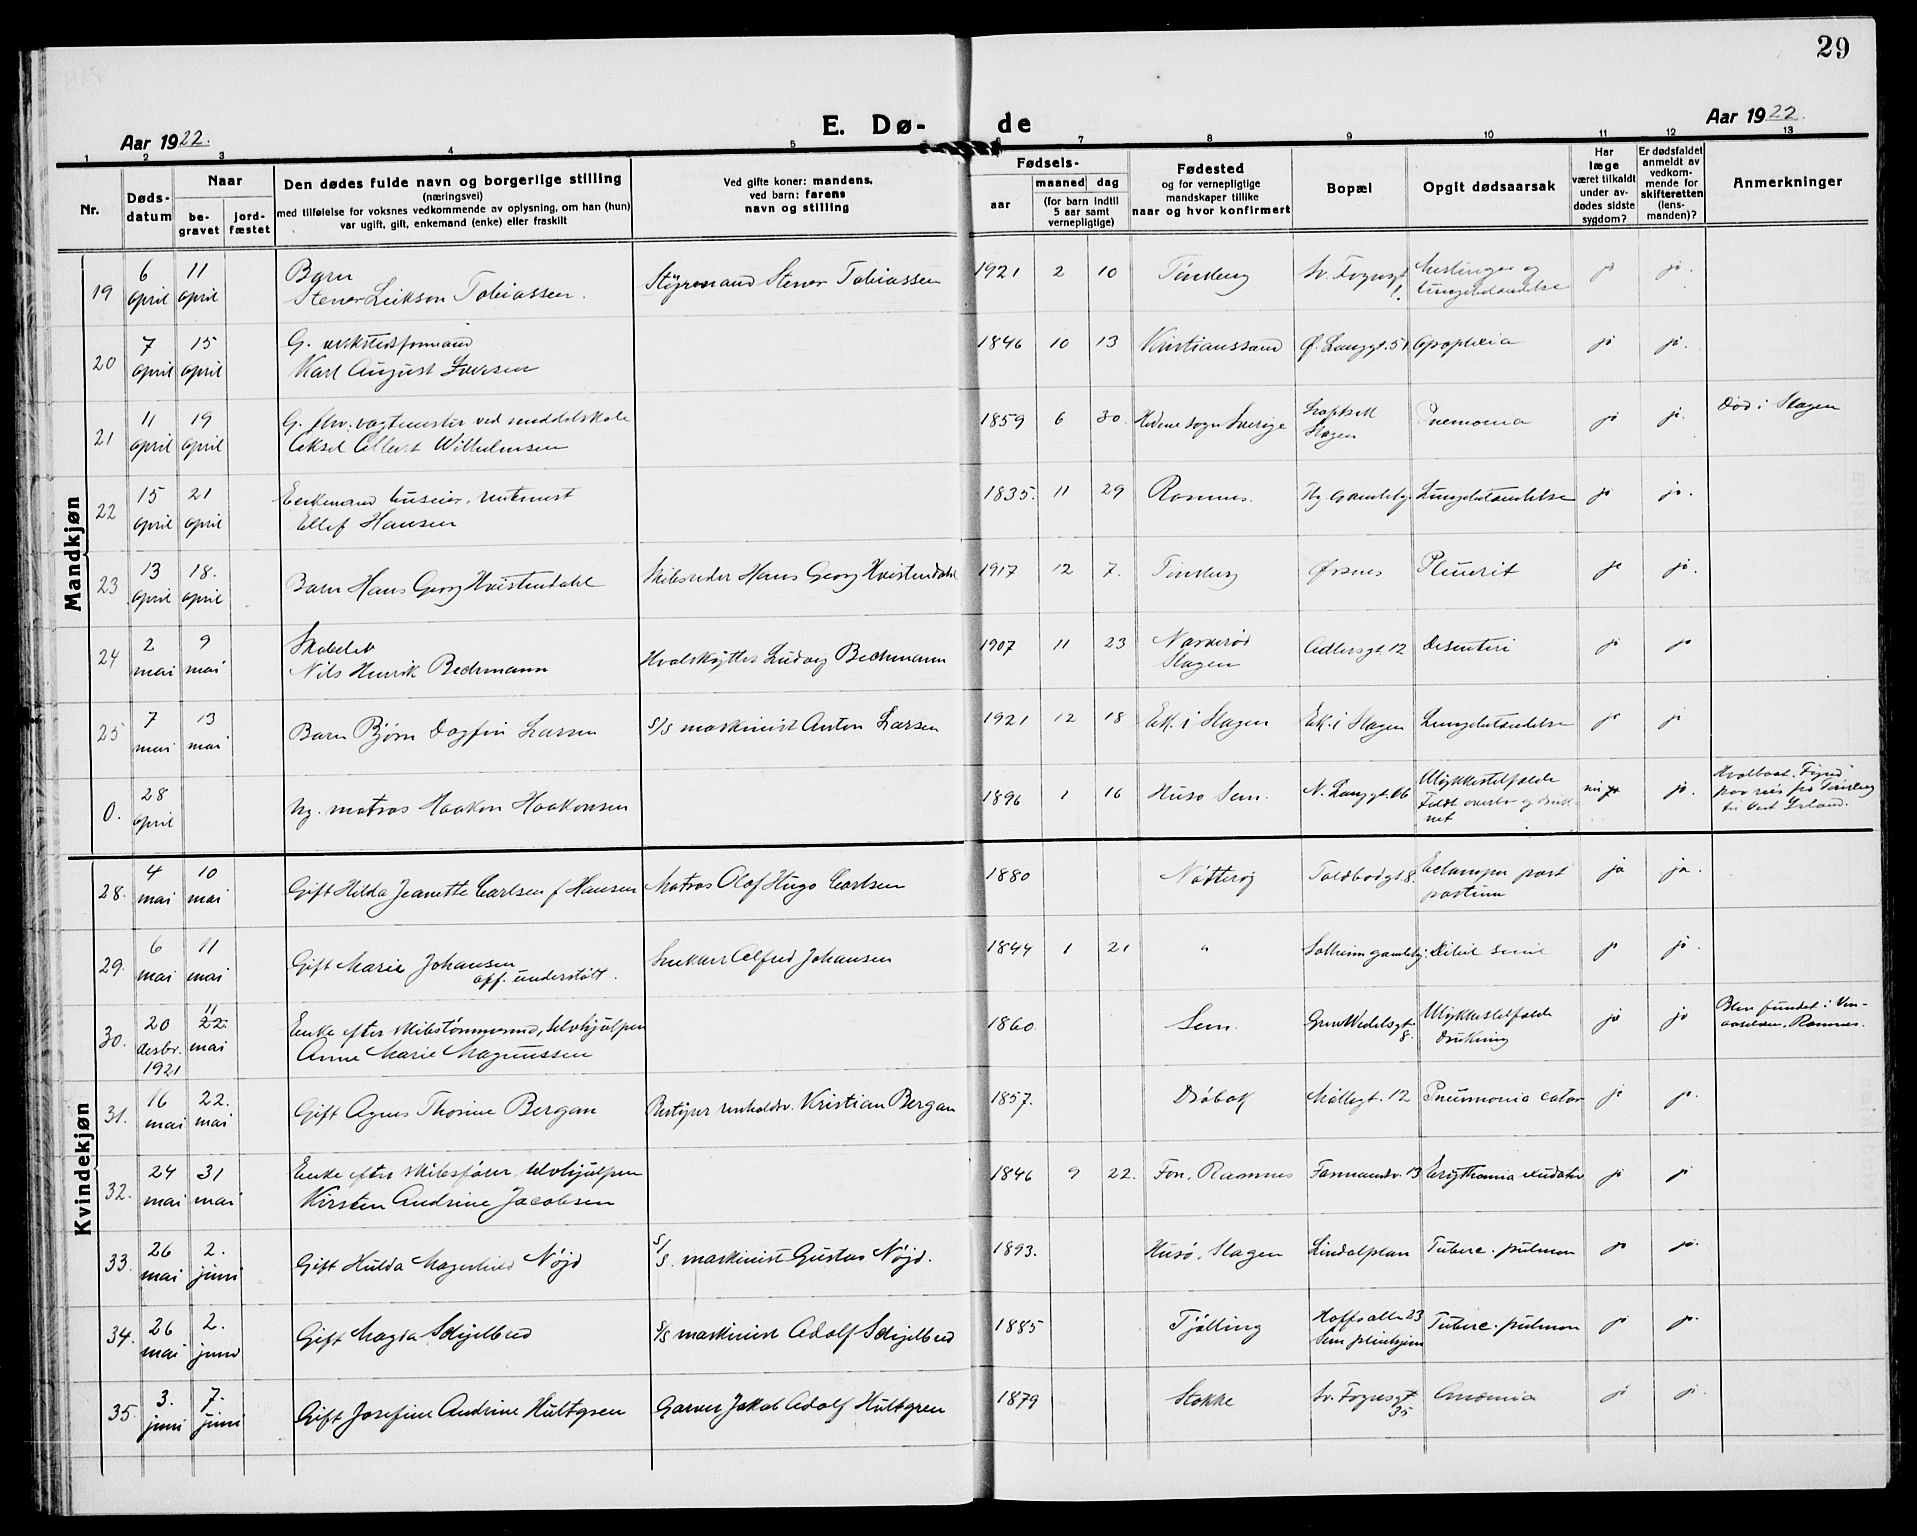 29
E. Dø- de
Aar 1922.
Aar 1922.
1 2 3 4 5 6 7 8 9 10 11 12 13
Nr.
Døds-
datum
Naar
be-
gravet
jord-
fæstet
Den dødes fulde navn og borgerlige stilling
(næringsvei)
med tilføielse for voksnes vedkommende av oplysning, om han (hun)
var ugift, gift, enkemand (enke) eller fraskilt
Ved gifte koner: mandens,
ved barn: farens
navn og stilling
Fødsels-
aar
maaned dag
(for barn indtil
5 aar samt
vernepligtige)
Fødested
og for vernepligtige
mandskaper tillike
naar og hvor konfirmert
Bopæl
Opgit dødsaarsak
Har
læge
været tilkaldt
under av-
dødes sidste
sygdom?
Er dødsfaldet
anmeldt av
vedkom-
mende for
skifteretten
(lens-
manden)?
Anmerkninger
Mandkjøn
19 6 april 11 april Barn
Stener Tobiassen. Styrmand Stener Tobiassen 1921 2 10 Tønsberg Sv. Fognsgt. Meslinger og
lungebetændelse jo jo.
20 7 april 15 april G. verkstedsformand
Karl August Iversen 1846 10 13 Kristianssand Ø. Langgt. 51 Apoplexia jo jo.
21 11 april 19 april G. fhv. vagtmester ved middelskole
Aksel Albert Wilhelmsen 1859 6 30. sogn Sverige
Slagen Pnemonia jo jo. Død i Slagen
22 15 april 21 april Enkemand huseier, rentenist
Ellef Hansen 1835. 11 29 Ramnes. Gamleby Lungebetændelse jo jo.
23 13 april 18. april Barn Hans Georg Hvistendahl Skibsreder Hans Georg Hvistendahl 1917 12 7. Tønsberg Ørsnes Pleurit jo jo.
24 2 mai 9 mai Skoleelev
Nils Henrik Bechmann Hvalskytter Ludvig Bechmann 1907 11 23 Narverød
Slagen Adlersgt. 12 Desenteri jo jo
25 7 mai 13 mai Barn Bjørn Dagfin Larsen s/s maskinist Anton Larsen 1921 12 18 Ek. i Slagen Ek. i Slagen Lungebetændelse jo jo
0. 28 april Ug. matros Haakon Haakonsen 1896 1 16 Husø Sem. N. Langgt. 66 Ulykkestilfælde
Faldt overbo og druk-
net nei jo. Hvalbaat
paa reis fra Tønsberg
til Vest Irland.
Kvindekjøn
28. 4 mai 10 mai Gift Hilda Jeanette Carlsen f Hansen Matros Olof Hugo Carlsen 1880 Nøtterøy Toldbodgt. 8. Eclampsi post
partum ja ja.
29. 6 mai 11 mai Gift Marie Johansen
off. understøtt. Snekker Alfred Johansen 1844 1 21 " Solheim gamleby. Debil senil jo jo.
30. 20 desbr. 1921 11 22. mai Enke efter skibstømmermd, selvhjulpen
Anne Marie Magnussen 1860. Sem. Grev Wedelsgt. 8. Ulykkestilfælde
drukning jo jo Blev fundet i Ven-
aaselven, Ramnes.
31. 16 mai 22. mai Gift Agnes Thorine Bergan Bestyrer renholdsv. Kristian Bergan 1857. Drøbak Møllegt. 12 Pneumonia catar jo jo.
32. 24 mai 31 mai Enke efter skibsfører selvhjulpen
Kirsten Andrine Jacobsen 1846 9 22. Fon, Ramnes Farmandsv. 13 Erythemia exudativ jo jo
33. 26 mai 2. juni Gift Hulda Magnhild Nøjd s/s. maskinist Gustav Nøjd. 1893. Husø, Slagen Lindalplan Tuberc. pulmon jo jo.
34. 26 mai 2. juni Gift Magda Schjelbred s/s maskinist Adolf Schjelbred 1885 Tjølling Hoffs alle 23
Sem pleiehjem Tuberc. pulmon jo jo.
35. 3. juni 7. juni Gift Josefine Andrine Hultgren Garver Jakob Adolf Hultgren 1879 Stokke Sv. Fognsgt
35 Anæmia jo jo.